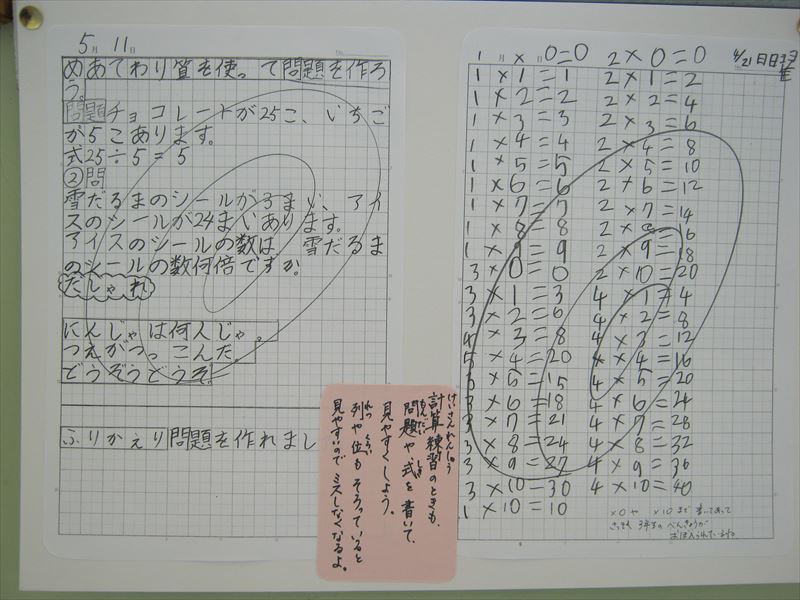 5月 11日
めあてわり算を使って問題を作ろ
う。
問題チョコレートが25こ、いちご
が5こあります。
式25÷5=5
②問
雪だるまのシールが3まい、アイ
スのシールが24まいあります。
アイスのシールの数は、雪だるま
のシールの数何倍ですか。
だしゃれ
にんじゃは何人じゃ。
つえがつっこんだ。
どうぞうどうぞ
ふりかえり問題を作れまし
計算練習のときも、
問題や式を書いて、
見やすくしよう。
列や位もそろっていると
見やすいのでミスしなくなるよ。
1×0=0
1×1=1
1×2=2
1×3=3
1×4=4
1×5=5
1×6=6
1×7=7
1×8=8
1×9=9
3×0=0
3×1=3
3×2=6
4×3=8
5×4=20
3×5=15
3×6=18
3×7=21
3×8=24
3×9=27
3×10=30
1×10=10
2×0=0
2×1=2
2×2=4
2×3=6
2×4=8
2×5=10
2×6=12
2×7=14
2×8=16
2×9=18
2×10=20
4×1=4
4×2=8
4×3=12
4×4=16
4×5=20
4×6=24
4×7=28
4×8=32
4×9=36
4×10=40
4/21
×0や ×10まで書いてあって
さっそく3年生のべんきょうが